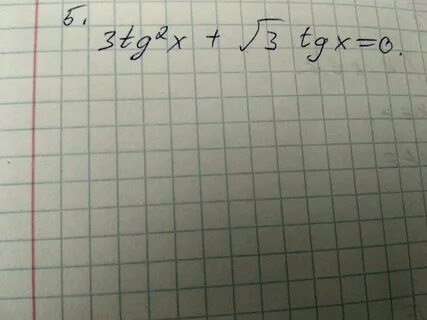 5.
3tg²x + √3 tgx=0.